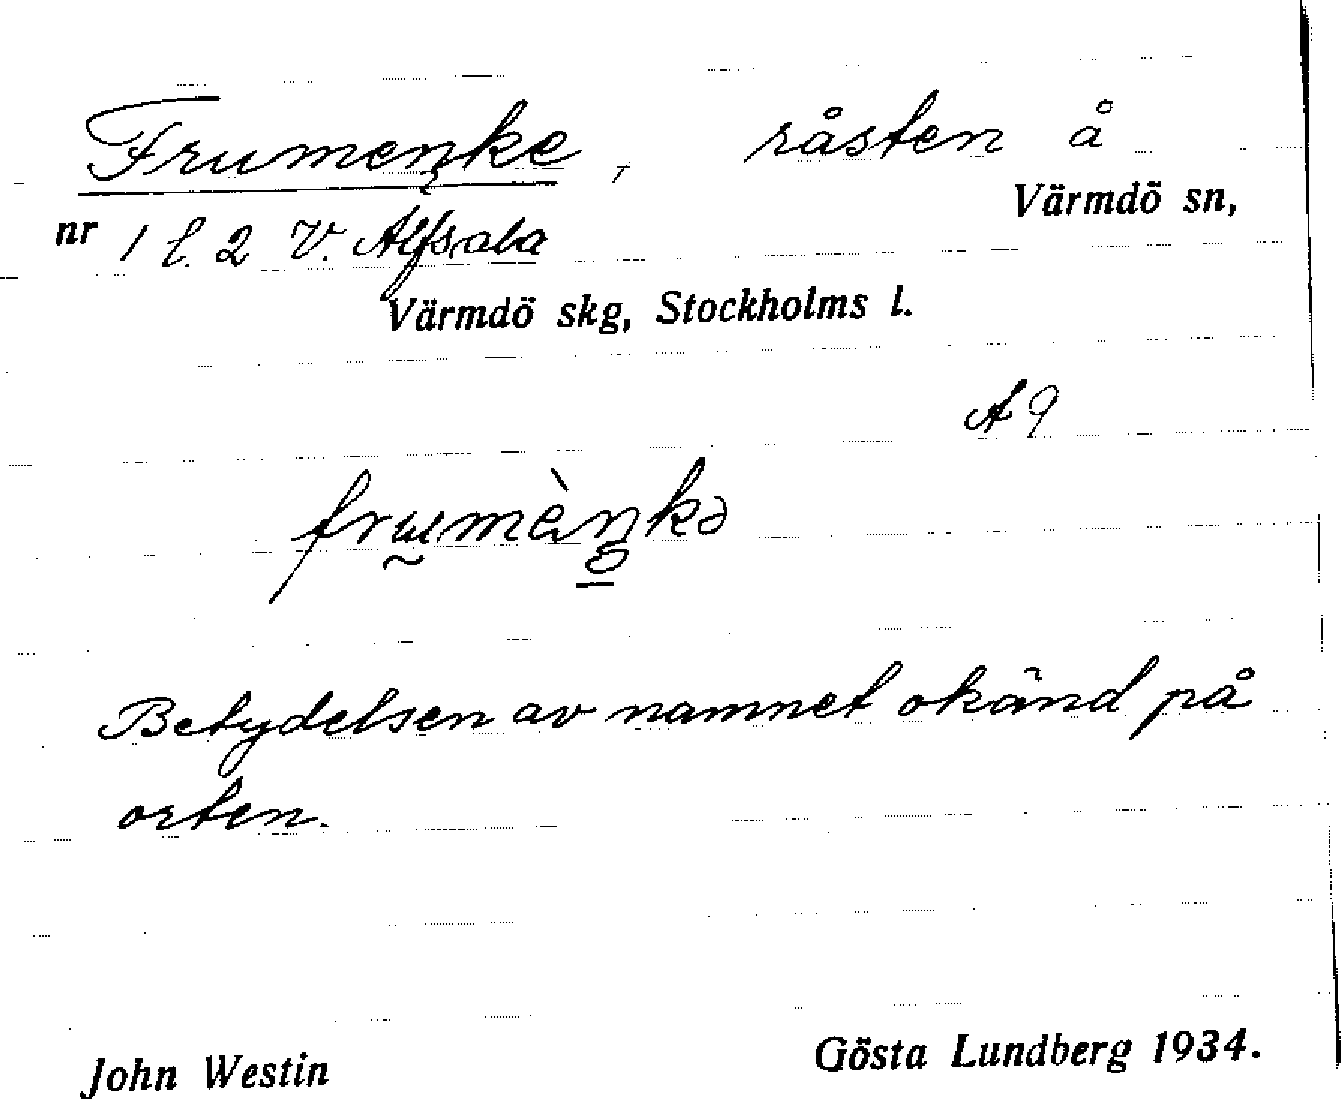 Frumenke, råsten å
Värmdö sn,
nr 1 l. 2 V. Alfsala
Värmdö skg, Stockholms l.
A 9
Betydelsen av namnet okänd på
orten.
John Westin
Gösta Lundberg 1934.